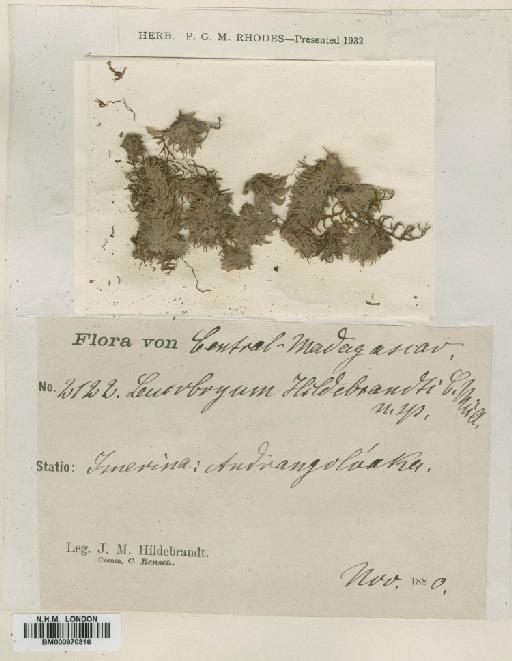 HERB. P. G. M. RHODES—Presented 1932
Flora von Central-Madagascar.
No. 2122. Leucobryum Hildebrandti C. Müll.
n. sp.
Statio: Imerina: Andrangolóaka.
Leg. J. M. Hildebrandt.
Comm. C. Rensch.
Nov. 1880.
N.H.M. LONDON
BM000870316